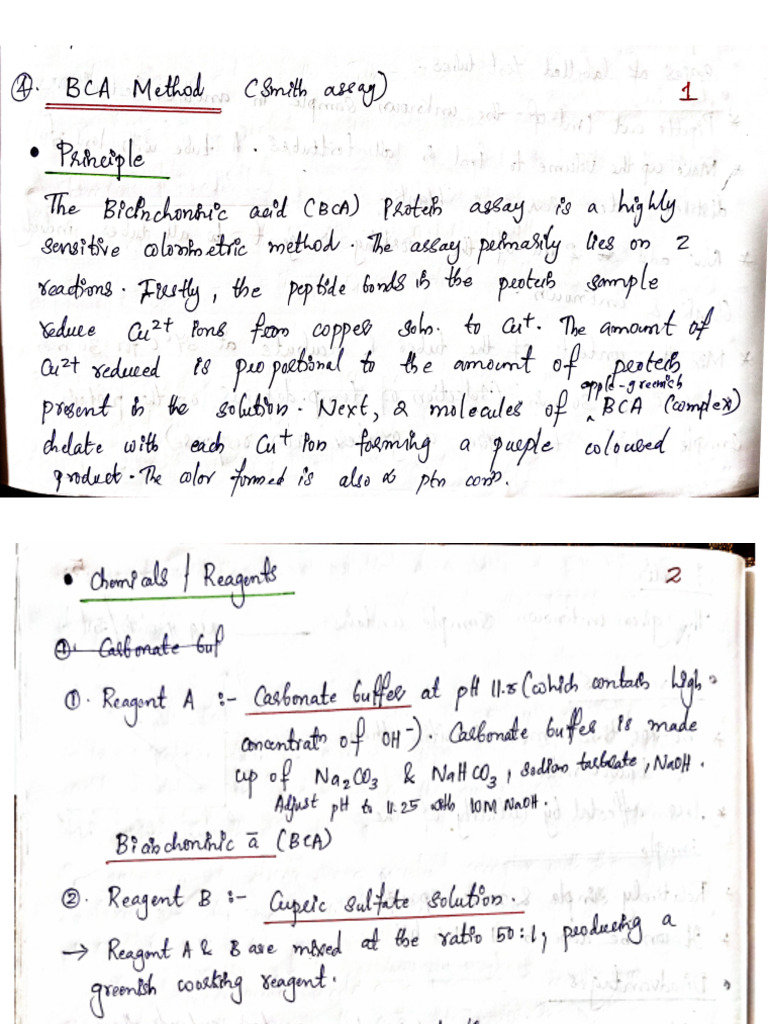 ④. BCA Method (Smith assay) 1
• Principle
The Bicinchoninic acid (BCA) Protein assay is a highly
sensitive colorimetric method. The assay primarily lies on 2
reactions. Firstly, the peptide bonds in the protein sample
reduce Cu²⁺ ions from copper soln. to Cu⁺. The amount of
Cu²⁺ reduced is proportional to the amount of protein
apple-greenish
present in the solution. Next, 2 molecules of ‸ BCA (complex)
chelate with each Cu⁺ ion forming a purple coloured
product. The color formed is also ∝ ptn concn.
• Chemicals / Reagents 2
①. Carbonate buf
①. Reagent A :- Carbonate buffer at pH (which contains high
concentratn of OH⁻). Carbonate buffer is made
up of Na₂CO₃ & NaHCO₃, sodium tartrate, NaOH.
Adjust pH to 11.25 with 10M NaOH.
Bicinchoninic a̅ (BCA)
②. Reagent B :- Cupric sulfate solution.
→ Reagent A & B are mixed at the ratio 50:1, producing a
greenish working reagent.